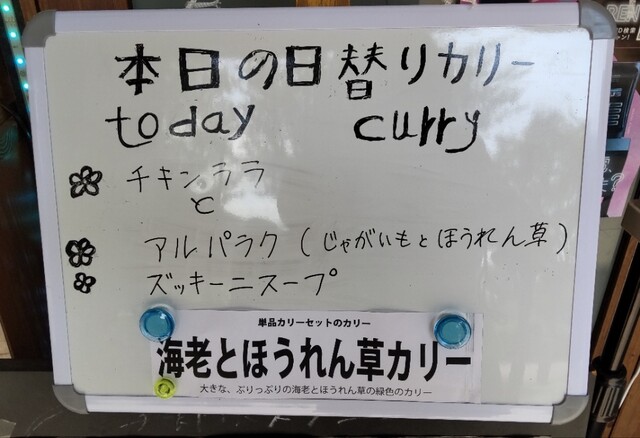 本日の日替りカリー
today curry
チキンララ
と
アルパラク(じゃがいもとほうれん草)
ズッキーニスープ
単品カリーセットのカリー
海老とほうれん草カリー
大きな、ぷりっぷりの海老とほうれん草の緑色のカリー